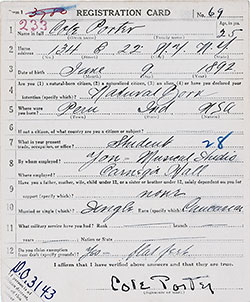 REGISTRATION CARD No. 69
233
1 Name in full Cole Porter Age, in yrs. 25
2 Home address 134 E 22 N.Y. N.Y.
3 Date of birth June 9 1892
4 Are you (1) a natural-born citizen, (2) a naturalized citizen, (3) an alien, (4) or have you declared your
intention (specify which)? Natural Born
5 Where were you born? Peru Ind USA
6 If not a citizen, of what country are you a citizen or subject?
7 What is your present trade, occupation, or office? Student 28
8 By whom employed? Yon - Musical Studio
Where employed? Carnegie Hall
9 Have you a father, mother, wife, child under 12, or a sister or brother under 12, solely dependent on you for
support (specify which)? none
10 Married or single (which)? Single Race (specify which)? Caucasian
11 What military service have you had? Rank
years Nation or State
12 Do you claim exemption from draft (specify grounds)? Yes - flat feet
I affirm that I have verified above answers and that they are true.
Cole Porter